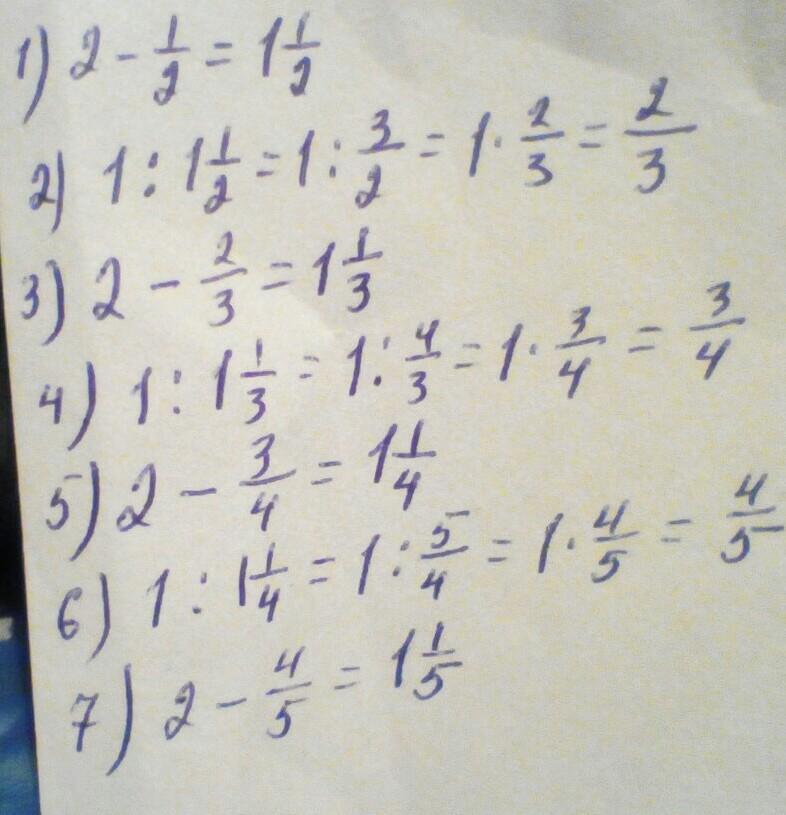 1) 2 - 1/2 = 1 1/2
2) 1 : 1 1/2 = 1 : 3/2 = 1 · 2/3 = 2/3
3) 2 - 2/3 = 1 1/3
4) 1 : 1 1/3 = 1 : 4/3 = 1 · 3/4 = 3/4
5) 2 - 3/4 = 1 1/4
6) 1 : 1 1/4 = 1 : 5/4 = 1 · 4/5 = 4/5
7) 2 - 4/5 = 1 1/5